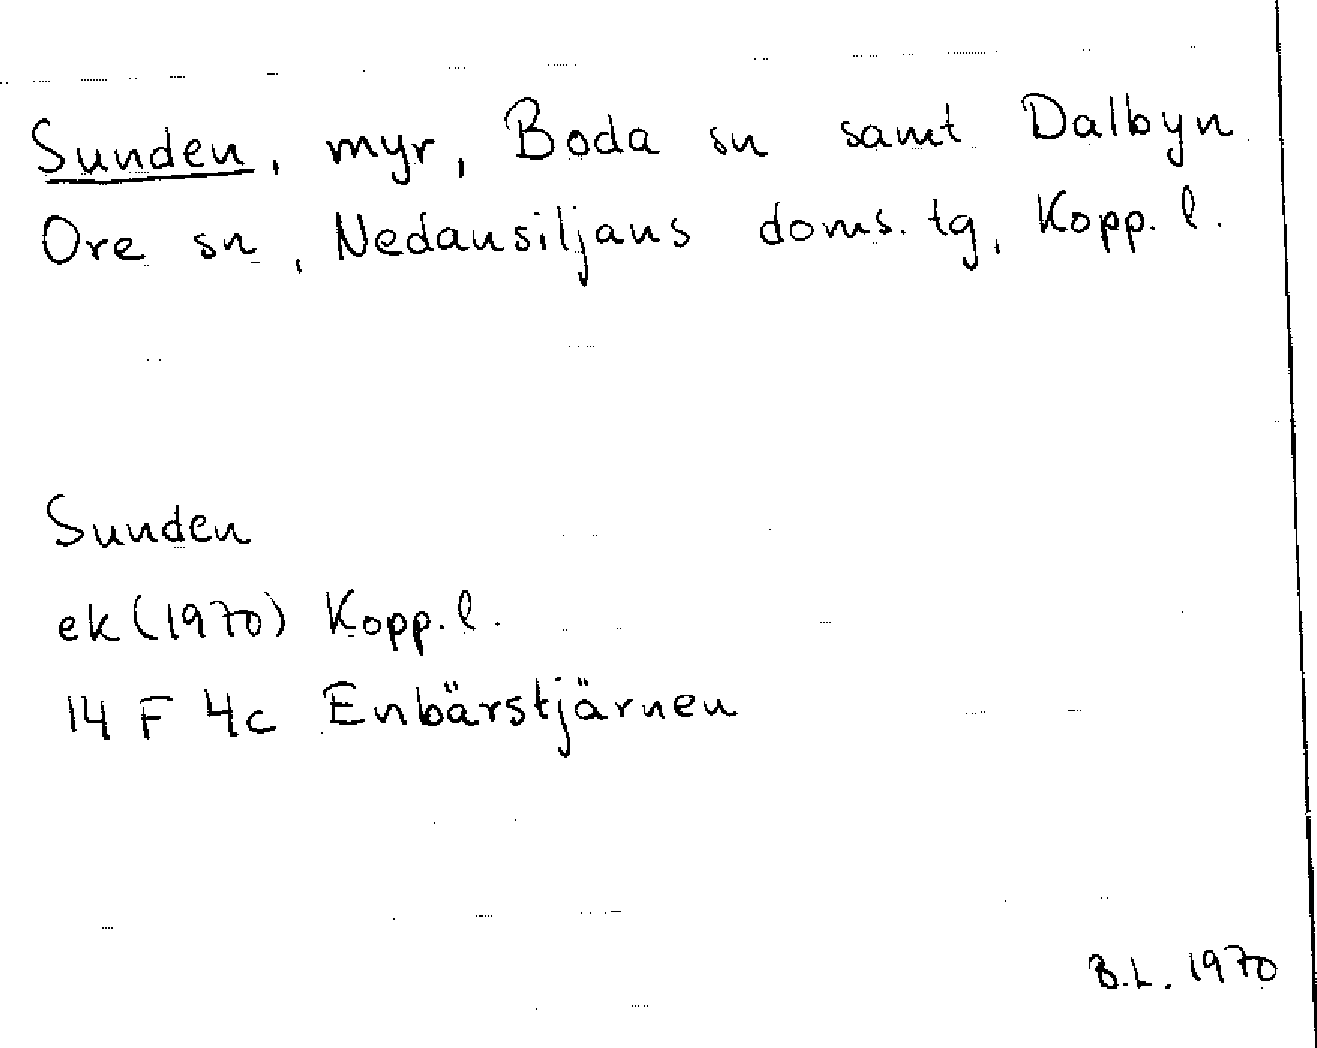 Sunden, myr, Boda sn samt Dalbyn
Ore sn, Nedansiljans doms. tg, Kopp. l.
Sunden
ek (1970) Kopp. l.
14 F 4c Enbärstjärnen
B.L. 1970